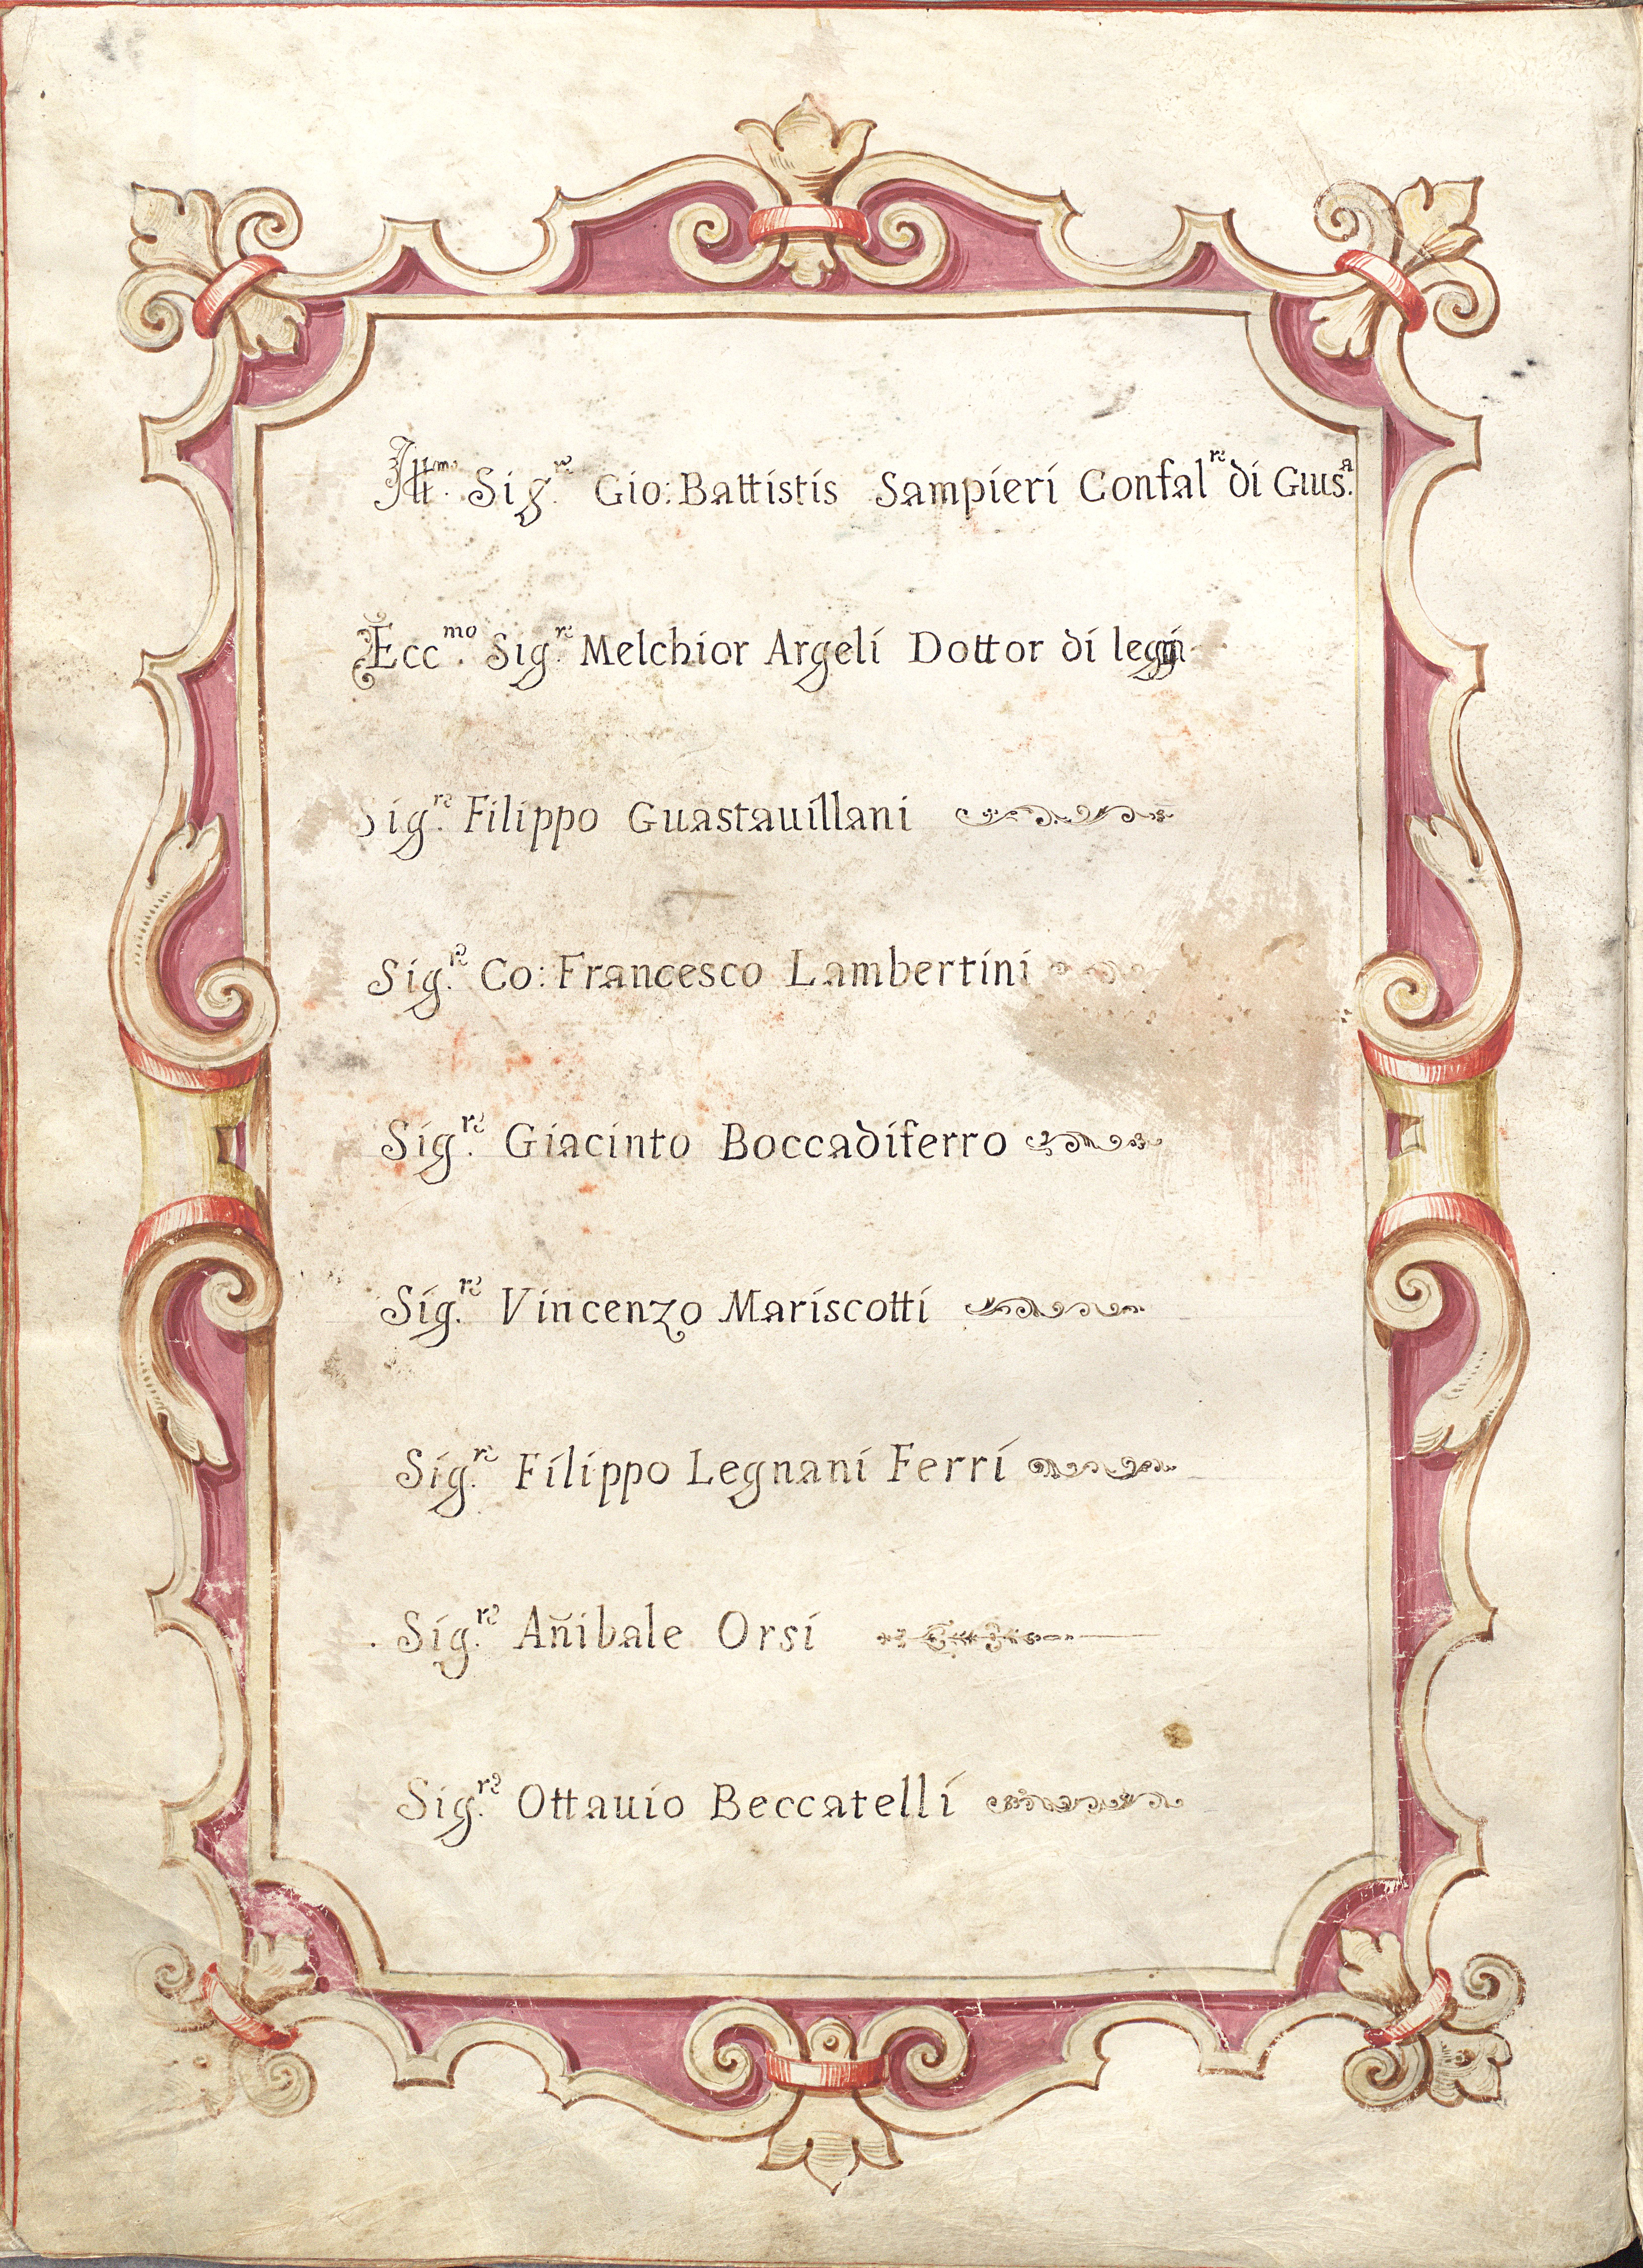 Ill.mo Sig.re Gio: Battistis Sampieri Confal.re di Gius.a
Ecc.mo Sig.re Melchior Argeli Dottor di leggi
Sig.re Filippo Guastauillani
Sig.re Co: Francesco Lambertini
Sig.re Giacinto Boccadiferro
Sig.re Vincenzo Mariscotti
Sig.re Filippo Legnani Ferri
Sig.re Añibale Orsi
Sig.re Ottauio Beccatelli